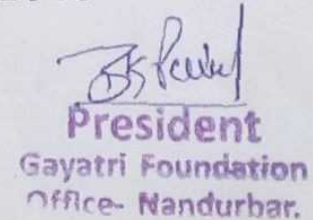 President
Gayatri Foundation
Office- Nandurbar.